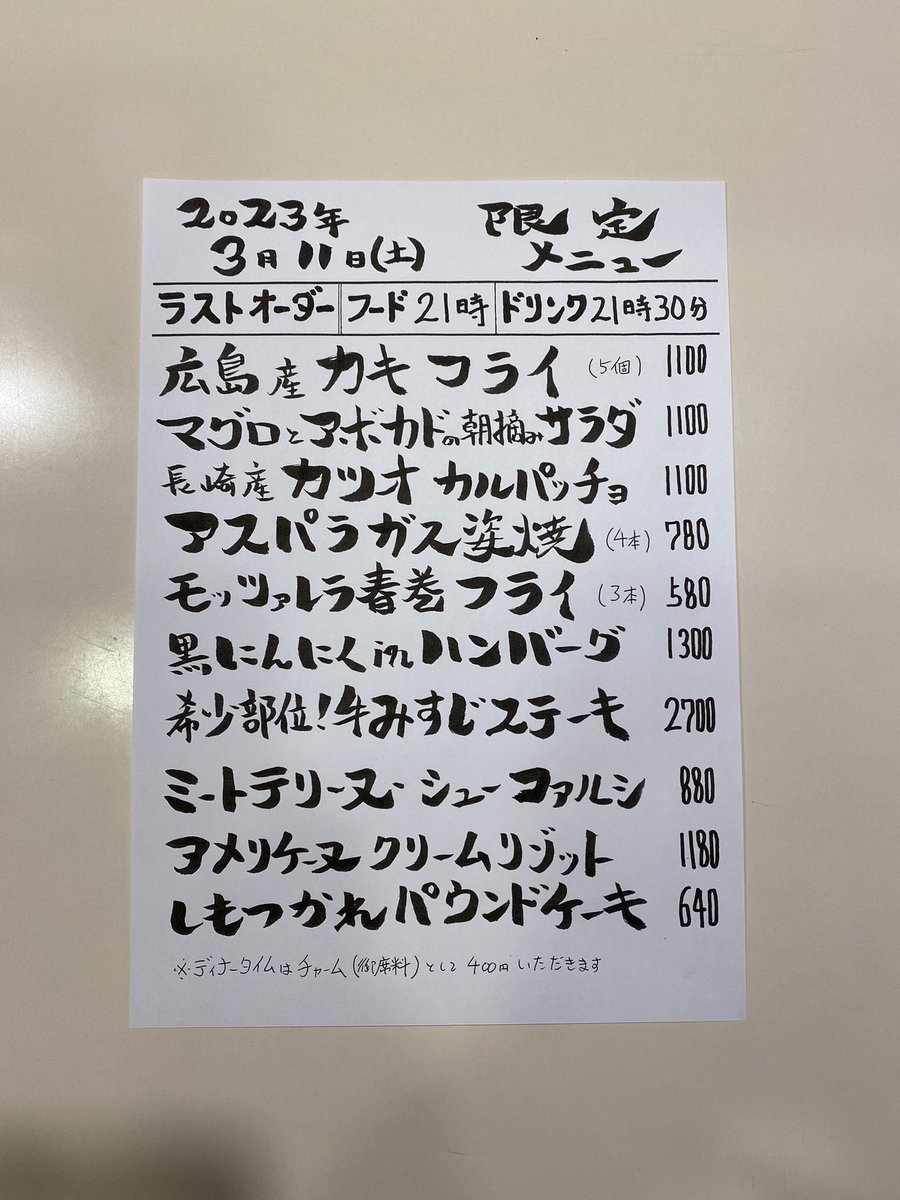 2023年
3月11日(土)
限定
メニュー
ラストオーダー フード21時 ドリンク21時30分
広島産 カキフライ (5個) 1100
マグロとアボカドの朝摘みサラダ 1100
長崎産 カツオ カルパッチョ 1100
アスパラガス姿焼 (4本) 780
モッツァレラ春巻フライ (3本) 580
黒にんにくinハンバーグ 1300
希少部位!牛みすじステーキ 2700
ミートテリーヌ シューファルシ 880
アメリケーヌクリームリゾット 1180
しもつかれパウンドケーキ 640
※ディナータイムはチャーム(御席料)として400円いただきます